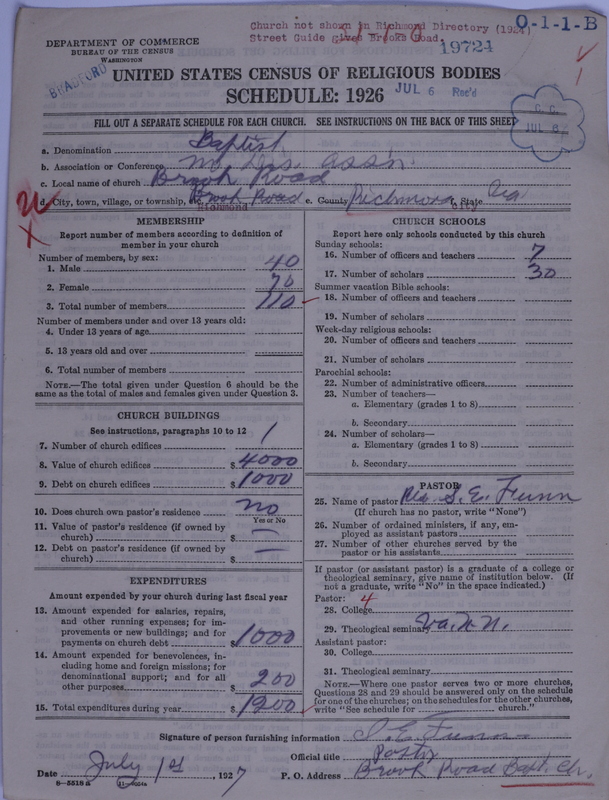 Church not shown in Richmond Directory (1924)
Street Guide gives Brooks Road.
0-1-1-B
19724
DEPARTMENT OF COMMERCE
BUREAU OF THE CENSUS
WASHINGTON
BRADFORD
UNITED STATES CENSUS OF RELIGIOUS BODIES
SCHEDULE: 1926
JUL 6 Rec'd
FILL OUT A SEPARATE SCHEDULE FOR EACH CHURCH. SEE INSTRUCTIONS ON THE BACK OF THIS SHEET
C. C.
JUL 6
a. Denomination Baptist
b. Association or Conference Assn.
c. Local name of church Brook Road
d. City, town, village, or township, etc. Brook Road e. County Richmond f. State Va
Richmond City
MEMBERSHIP
Report number of members according to definition of
member in your church
Number of members, by sex:
1. Male 40
2. Female 70
3. Total number of members 110
Number of members under and over 13 years old:
4. Under 13 years of age
5. 13 years old and over
6. Total number of members
NOTE.—The total given under Question 6 should be the
same as the total of males and females given under Question 3.
CHURCH BUILDINGS
See instructions, paragraphs 10 to 12
7. Number of church edifices 1
8. Value of church edifices $ 4000
9. Debt on church edifices $ 1000
10. Does church own pastor's residence no
Yes or No
11. Value of pastor's residence (if owned by
church) $ —
12. Debt on pastor's residence (if owned by
church) $ —
EXPENDITURES
Amount expended by your church during last fiscal year
13. Amount expended for salaries, repairs,
and other running expenses; for im-
provements or new buildings; and for
payments on church debt $ 1000
14. Amount expended for benevolences, in-
cluding home and foreign missions; for
denominational support; and for all
other purposes $ 200
15. Total expenditures during year $ 1200
CHURCH SCHOOLS
Report here only schools conducted by this church
Sunday schools:
16. Number of officers and teachers 7
17. Number of scholars 30
Summer vacation Bible schools:
18. Number of officers and teachers
19. Number of scholars
Week-day religious schools:
20. Number of officers and teachers
21. Number of scholars
Parochial schools:
22. Number of administrative officers
23. Number of teachers—
a. Elementary (grades 1 to 8)
b. Secondary
24. Number of scholars—
a. Elementary (grades 1 to 8)
b. Secondary
PASTOR
25. Name of pastor Rev. S. E. Funn
(If church has no pastor, write "None")
26. Number of ordained ministers, if any, em-
ployed as assistant pastors
27. Number of other churches served by the
pastor or his assistants
If pastor (or assistant pastor) is a graduate of a college or
theological seminary, give name of institution below. (If
not a graduate, write "No" in the space indicated.)
Pastor: 4
28. College
29. Theological seminary Va. U.
Assistant pastor:
30. College
31. Theological seminary
NOTE.—Where one pastor serves two or more churches,
Questions 28 and 29 should be answered only on the schedule
for one of the churches; on the schedules for the other churches,
write "See schedule for church."
Signature of person furnishing information S. E. Funn
Official title Pastor
Date July 1st, 1927 P. O. Address Brook Road Bapt. Ch.
8-5518a